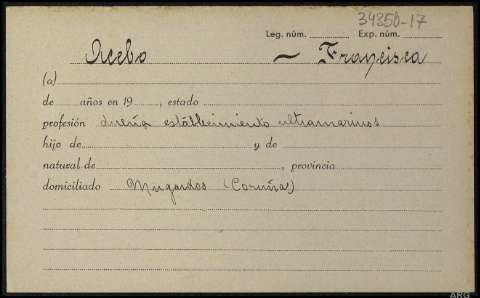 34850-17
Leg. núm. Exp. núm.
Acebo — Francisca
(a)
de años en 19, estado
profesión dueña establecimiento ultramarinos
hijo de y de
natural de, provincia
domiciliado Mugardos (Coruña)
ARG